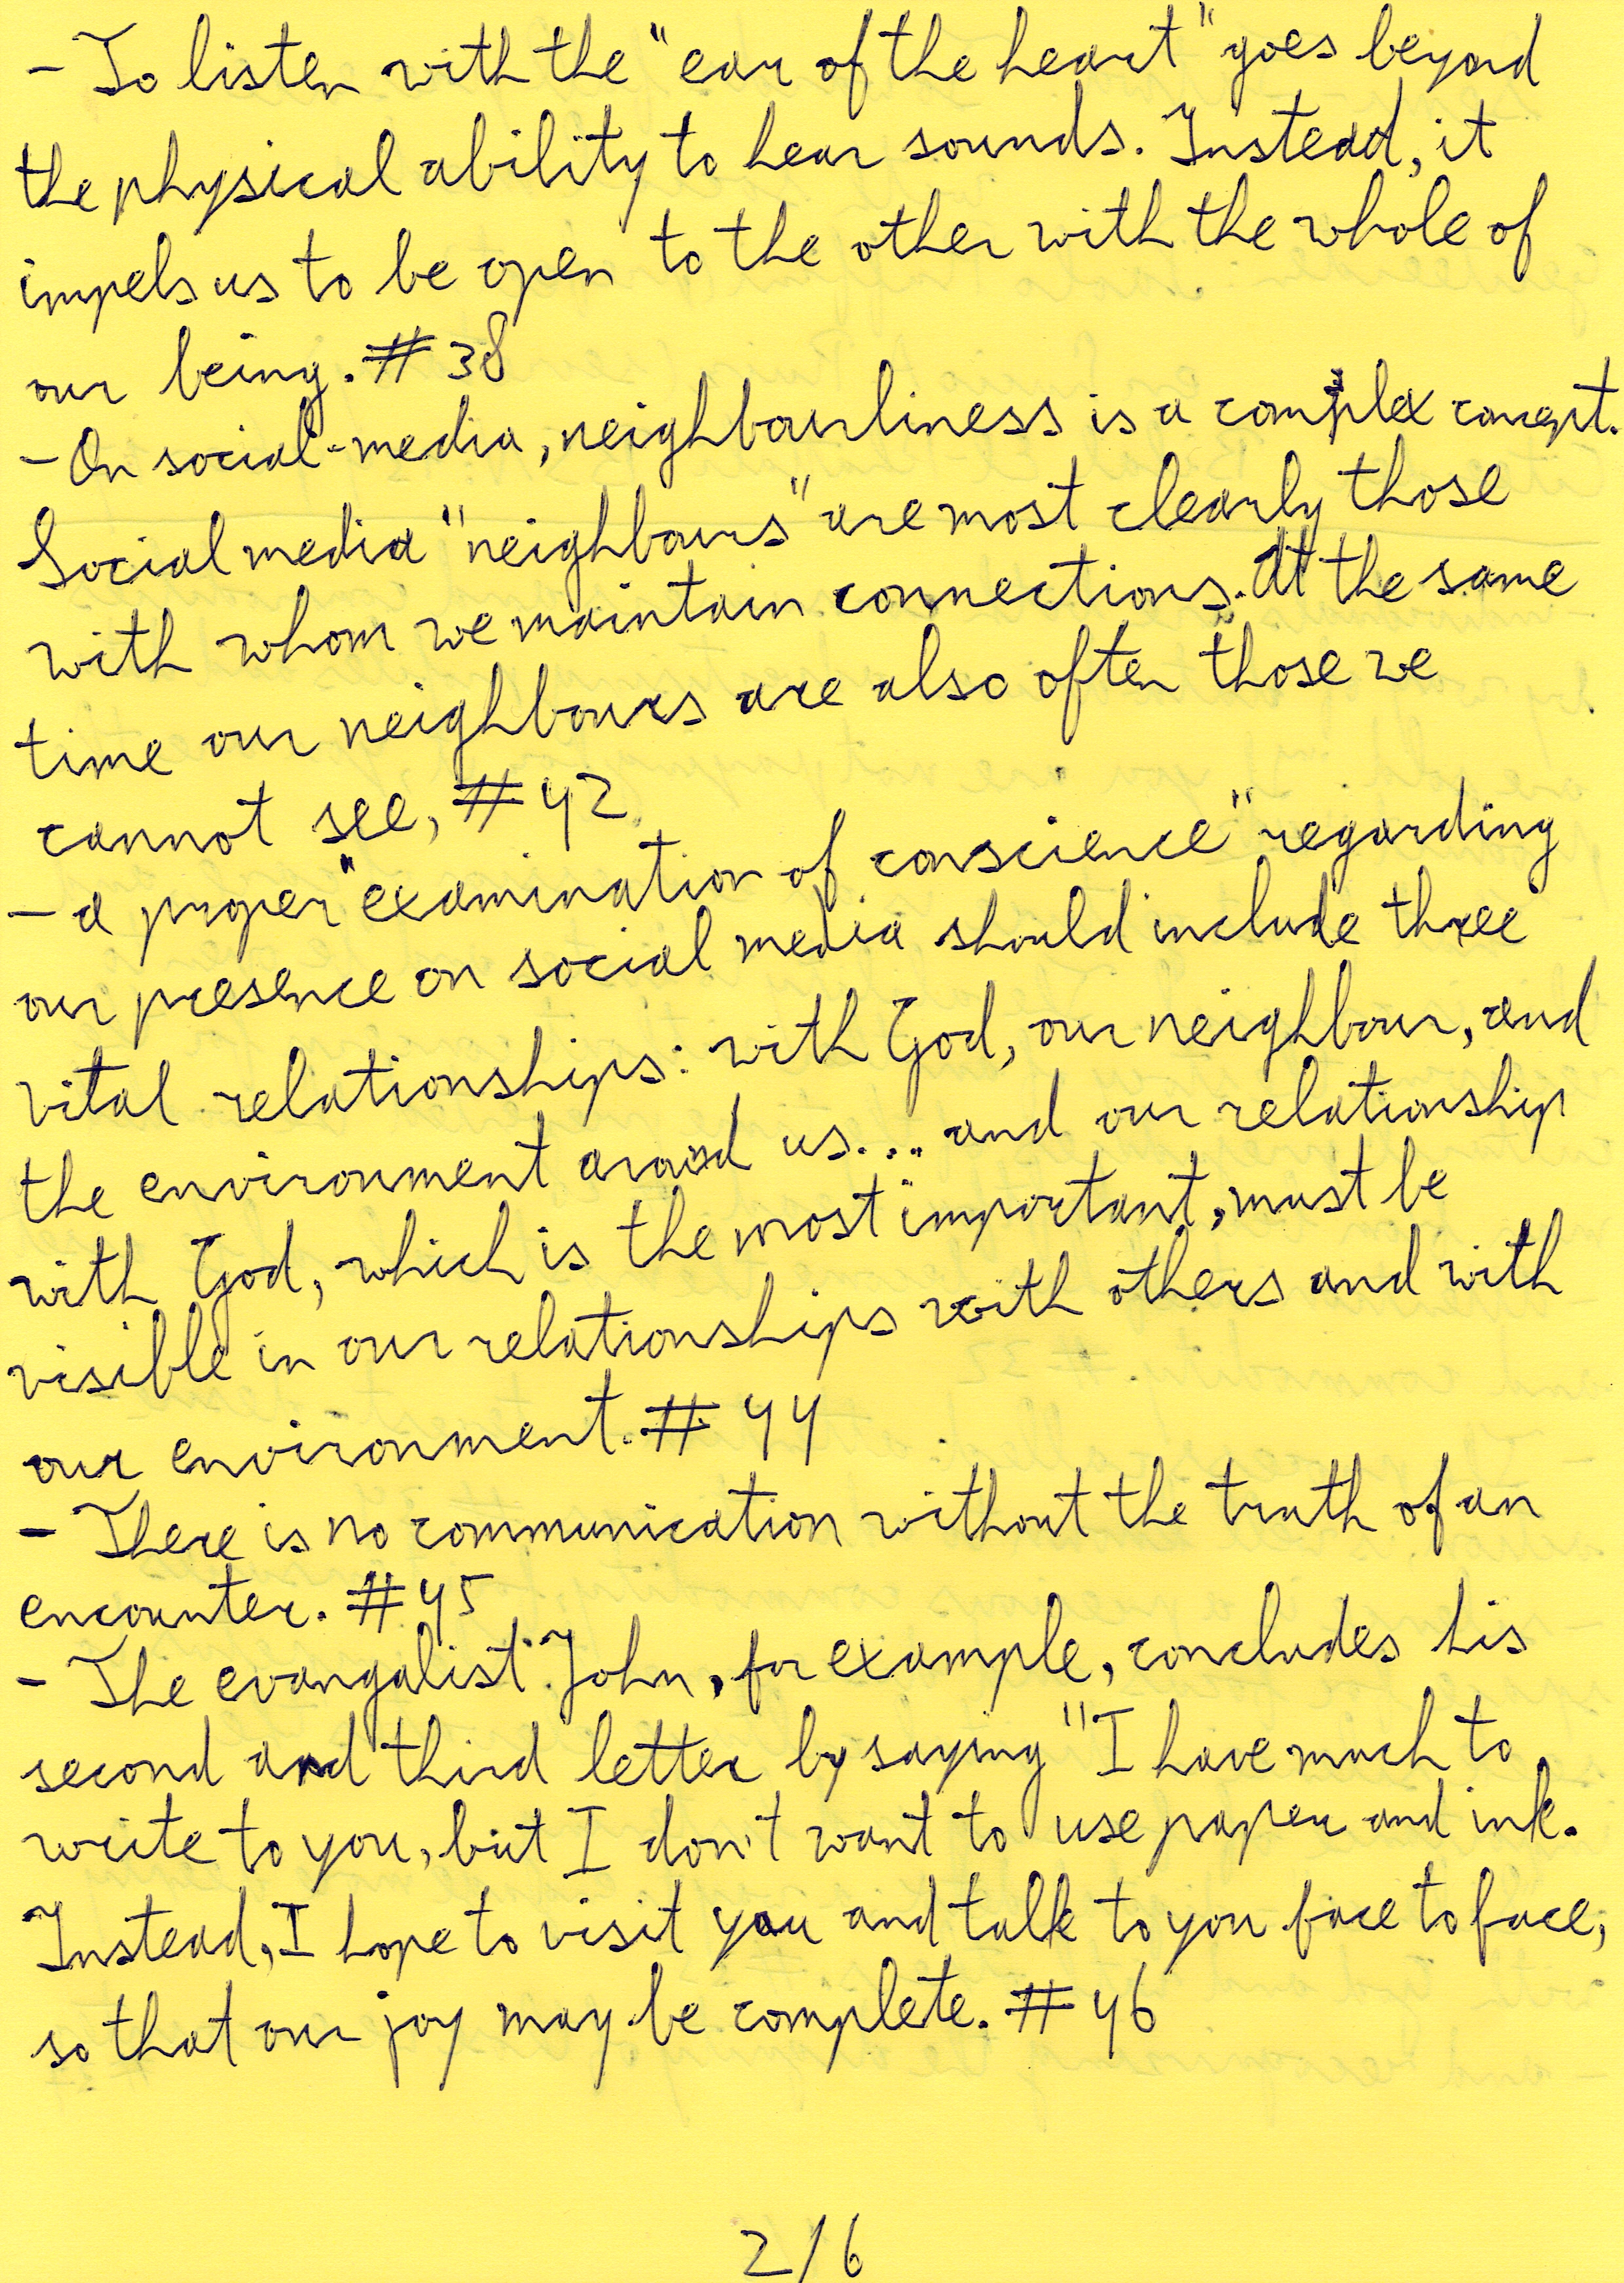 - To listen with the "ear of the heart" goes beyond
the physical ability to hear sounds. Instead, it
impels us to be open to the other with the whole of
our being. # 38
- On social-media, neighbourliness is a complex concept.
Social media "neighbours" are most clearly those
with whom we maintain connections. At the same
time our neighbours are also often those we
cannot see, # 42
- a proper "examination of conscience" regarding
our presence on social media should include three
vital relationships: with God, our neighbour, and
the environment around us... and our relationship
with God, which is the most important, must be
visible in our relationships with others and with
our environment. # 44
- There is no communication without the truth of an
encounter. # 45
- The evangalist John, for example, concludes his
second and third letter by saying "I have much to
write to you, but I don't want to use paper and ink.
Instead, I hope to visit you and talk to you face to face,
so that our joy may be complete. # 46
2/6